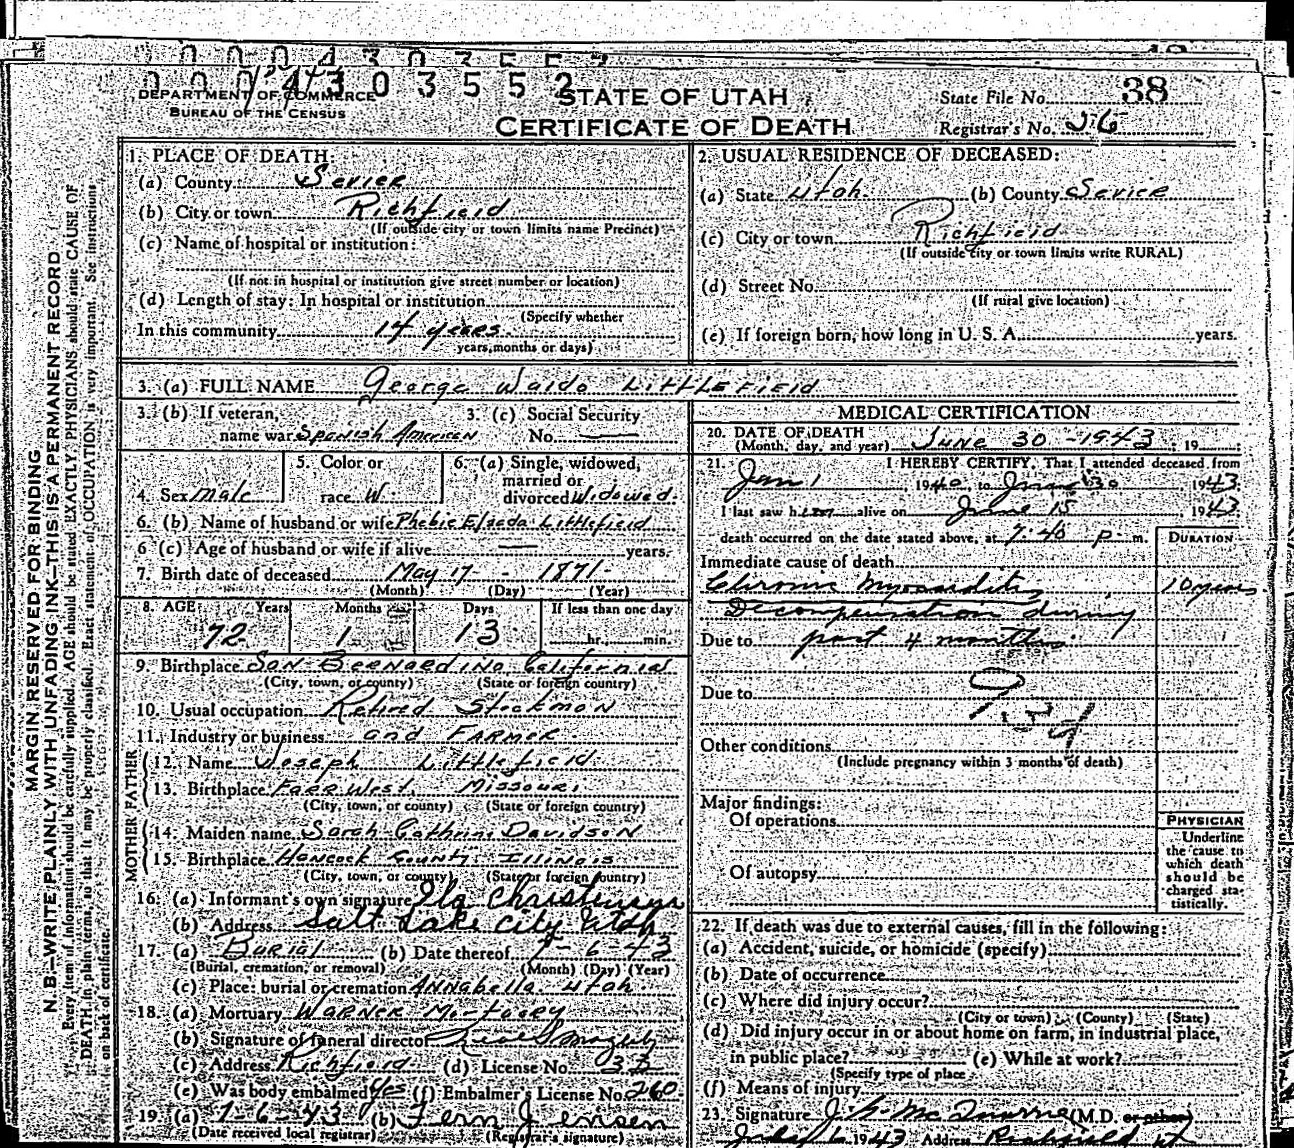 0 0 0 4 3 0 3 5 5 2
DEPARTMENT OF COMMERCE
BUREAU OF THE CENSUS
STATE OF UTAH
CERTIFICATE OF DEATH
State File No. 38
Registrar's No. 56
MARGIN RESERVED FOR BINDING
N. B.—WRITE PLAINLY WITH UNFADING INK—THIS IS A PERMANENT RECORD
Every item of information should be carefully supplied. AGE should be stated EXACTLY. PHYSICIANS should state CAUSE OF
DEATH in plain terms, so that it may be properly classified. Exact statement of OCCUPATION is very important. See instructions
on back of certificate.
1. PLACE OF DEATH
(a) County: Sevier
(b) City or town Richfield
(If outside city or town limits name Precinct)
(c) Name of hospital or institution:
(If not in hospital or institution give street number or location)
(d) Length of stay: In hospital or institution
(Specify whether
In this community 14 years
years, months or days)
2. USUAL RESIDENCE OF DECEASED:
(a) State Utah (b) County Sevier
(c) City or town Richfield
(If outside city or town limits write RURAL)
(d) Street No.
(If rural give location)
(e) If foreign born, how long in U. S. A. years.
3. (a) FULL NAME George Waldo Littlefield
3. (b) If veteran, 3. (c) Social Security
name war Spanish American No. —
4. Sex male
5. Color or
race W.
6. (a) Single, widowed,
married or
divorced Widowed.
6. (b) Name of husband or wife Phebie Elzada Littlefield
6 (c) Age of husband or wife if alive — years.
7. Birth date of deceased May 17 - 1871
(Month) (Day) (Year)
8. AGE Years Months Days If less than one day
72 1 13 hr. min.
9. Birthplace San Bernardino California
(City, town, or county) (State or foreign country)
10. Usual occupation Retired Stockman
11. Industry or business and Farmer
FATHER
12. Name Joseph Littlefield
13. Birthplace Farr West, Missouri
(City, town, or county) (State or foreign country)
MOTHER
14. Maiden name Sarah Cathrine Davidson
15. Birthplace Hancock County, Illinois
(City, town, or county) (State or foreign country)
16. (a) Informant's own signature Ila Christensen
(b) Address Salt Lake City Utah
17. (a) Burial (b) Date thereof 7-6-43
(Burial, cremation, or removal) (Month) (Day) (Year)
(c) Place: burial or cremation Annabella Utah.
18. (a) Mortuary Warner Mortuary
(b) Signature of funeral director
(c) Address Richfield (d) License No. 33
(e) Was body embalmed Yes (f) Embalmer's License No. 260
19. (a) 7-6-43 (b) Fern Jensen
(Date received local registrar) (Registrar's signature)
MEDICAL CERTIFICATION
20. DATE OF DEATH
(Month, day, and year) June 30 - 1943, 19
21. I HEREBY CERTIFY, That I attended deceased from
Jan 1 1940, to June 30 1943
I last saw him alive on June 15 1943
death occurred on the date stated above, at 7:40 P. m.
DURATION
Immediate cause of death
Chronic Myocarditis 10 years
Decompensation during
Due to past 4 months.
Due to 93d
Other conditions
(Include pregnancy within 3 months of death)
Major findings:
Of operations
Of autopsy
PHYSICIAN
Underline
the cause to
which death
should be
charged sta-
tistically.
22. If death was due to external causes, fill in the following:
(a) Accident, suicide, or homicide (specify)
(b) Date of occurrence
(c) Where did injury occur?
(City or town) (County) (State)
(d) Did injury occur in or about home on farm, in industrial place,
in public place? (e) While at work?
(Specify type of place
(f) Means of injury
23. Signature (M.D. or other)
July 6 1943 Address Richfield Ut